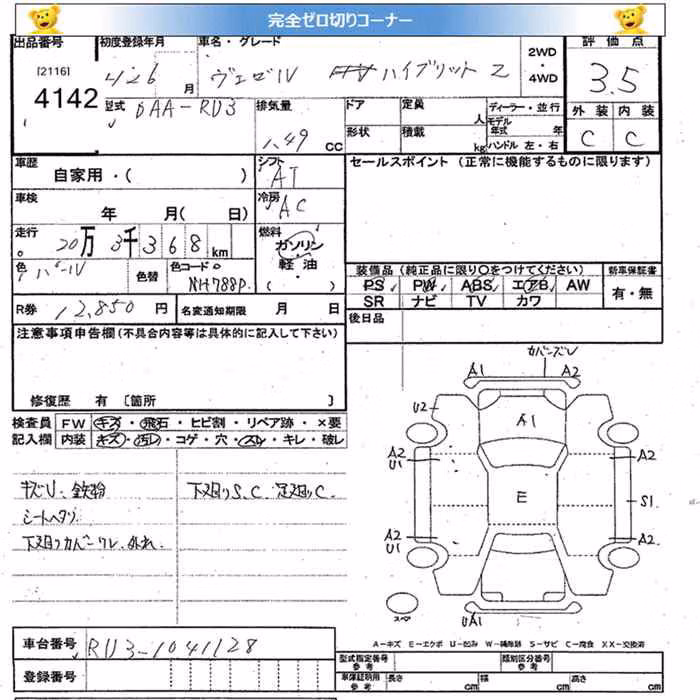 完全ゼロ切りコーナー
出品番号
[2116]
4142
初度登録年月
426 月
車名・グレード
ヴェゼル ハイブリット Z
2WD
・
4WD
評価点
3.5
型式 DAA-RU3
排気量
1.49 CC
ドア
定員 人
形状
積載 kg
ディーラー・並行
モデル
年式 年
ハンドル 左・右
外装
内装
C
C
車歴
自家用・( )
シフト
AT
セールスポイント (正常に機能するものに限ります)
車検
年 月( 日)
冷房
AC
走行
20万 3千368 km
燃料
ガソリン
・
軽油
( )
色
パール
色替
色コードNo
NH788P
装備品 (純正品に限り〇をつけてください)
新車保証書
PS PW ABS エアB AW
SR ナビ TV カワ
有・無
R券 12,850 円
名変通知期限 月 日
後日品
注意事項申告欄 (不具合内容等は具体的に記入して下さい)
修復歴 有 [箇所 ]
検査員
記入欄
FW キズ・飛石・ヒビ割・リペア跡・×要
内装 キズ・汚れ・コゲ・穴・スレ・キレ・破レ
キズU・鉄粉
シートヘタリ
下廻りカバーワレ、外れ
下廻りS、C 足廻りC
カバーズレ
A1
A2
U2
A1
A2
U1
A2
E
S1
A2
U1
A2
スペア
UA1
A-キズ E-エクボ U-凹み W-補修跡 S-サビ C-腐食 XX-交換済
車台番号 RU3-1041128
登録番号
型式指定番号
参考
類別区分番号
参考
車庫証明用
参考
長さ cm
幅 cm
高 cm